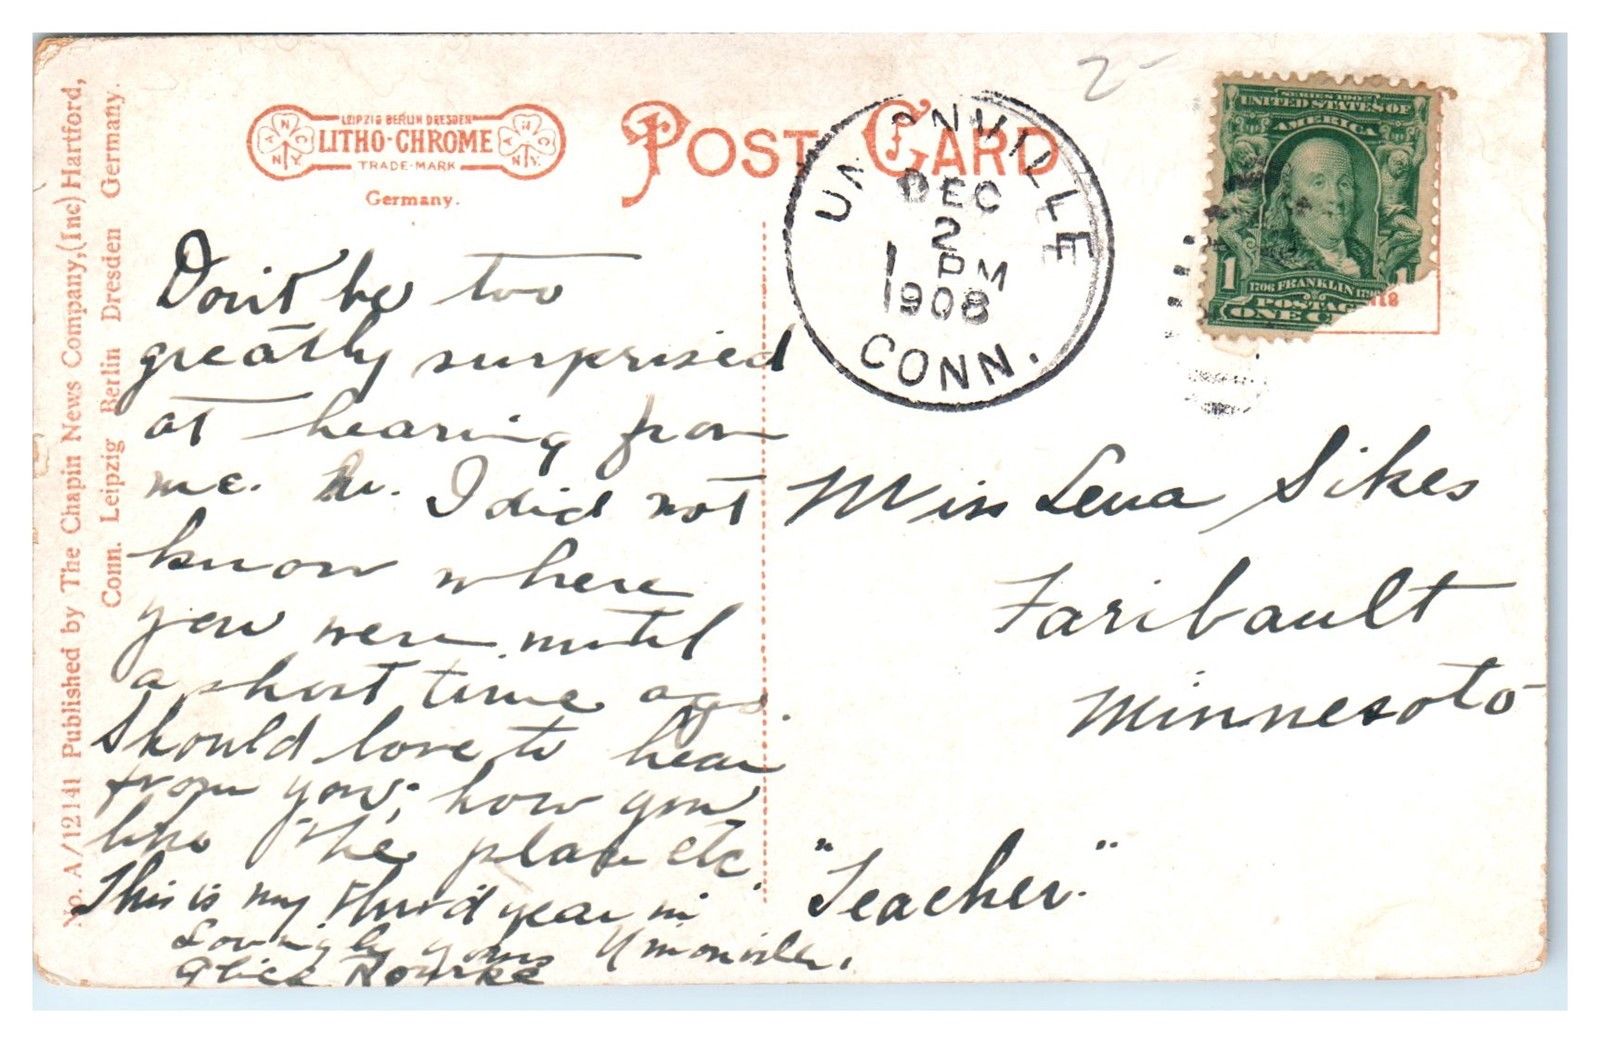 No. A/12141 Published by The Chapin News Company, (Inc) Hartford,
Conn. Leipzig Berlin Dresden Germany.
LEIPZIG BERLIN DRESDEN
LITHO-CHROME
TRADE-MARK
Germany.
POST CARD
2-
UNIONVILLE
DEC
2
1 PM
1908
CONN.
SERIES 1902
UNITED STATES OF
AMERICA
1 1
1706 FRANKLIN 1790
POSTAG
ONE C
Don't be too
greatly surprised
at hearing from
me. I did not
know where
you were until
a short time ago.
Should love to hear
from you; how you
like the place etc.
This is my third year in
Unionville.
Lovingly yours
Alice Rourke
Miss Lena Sikes
Faribault
Minnesota
"Teacher."